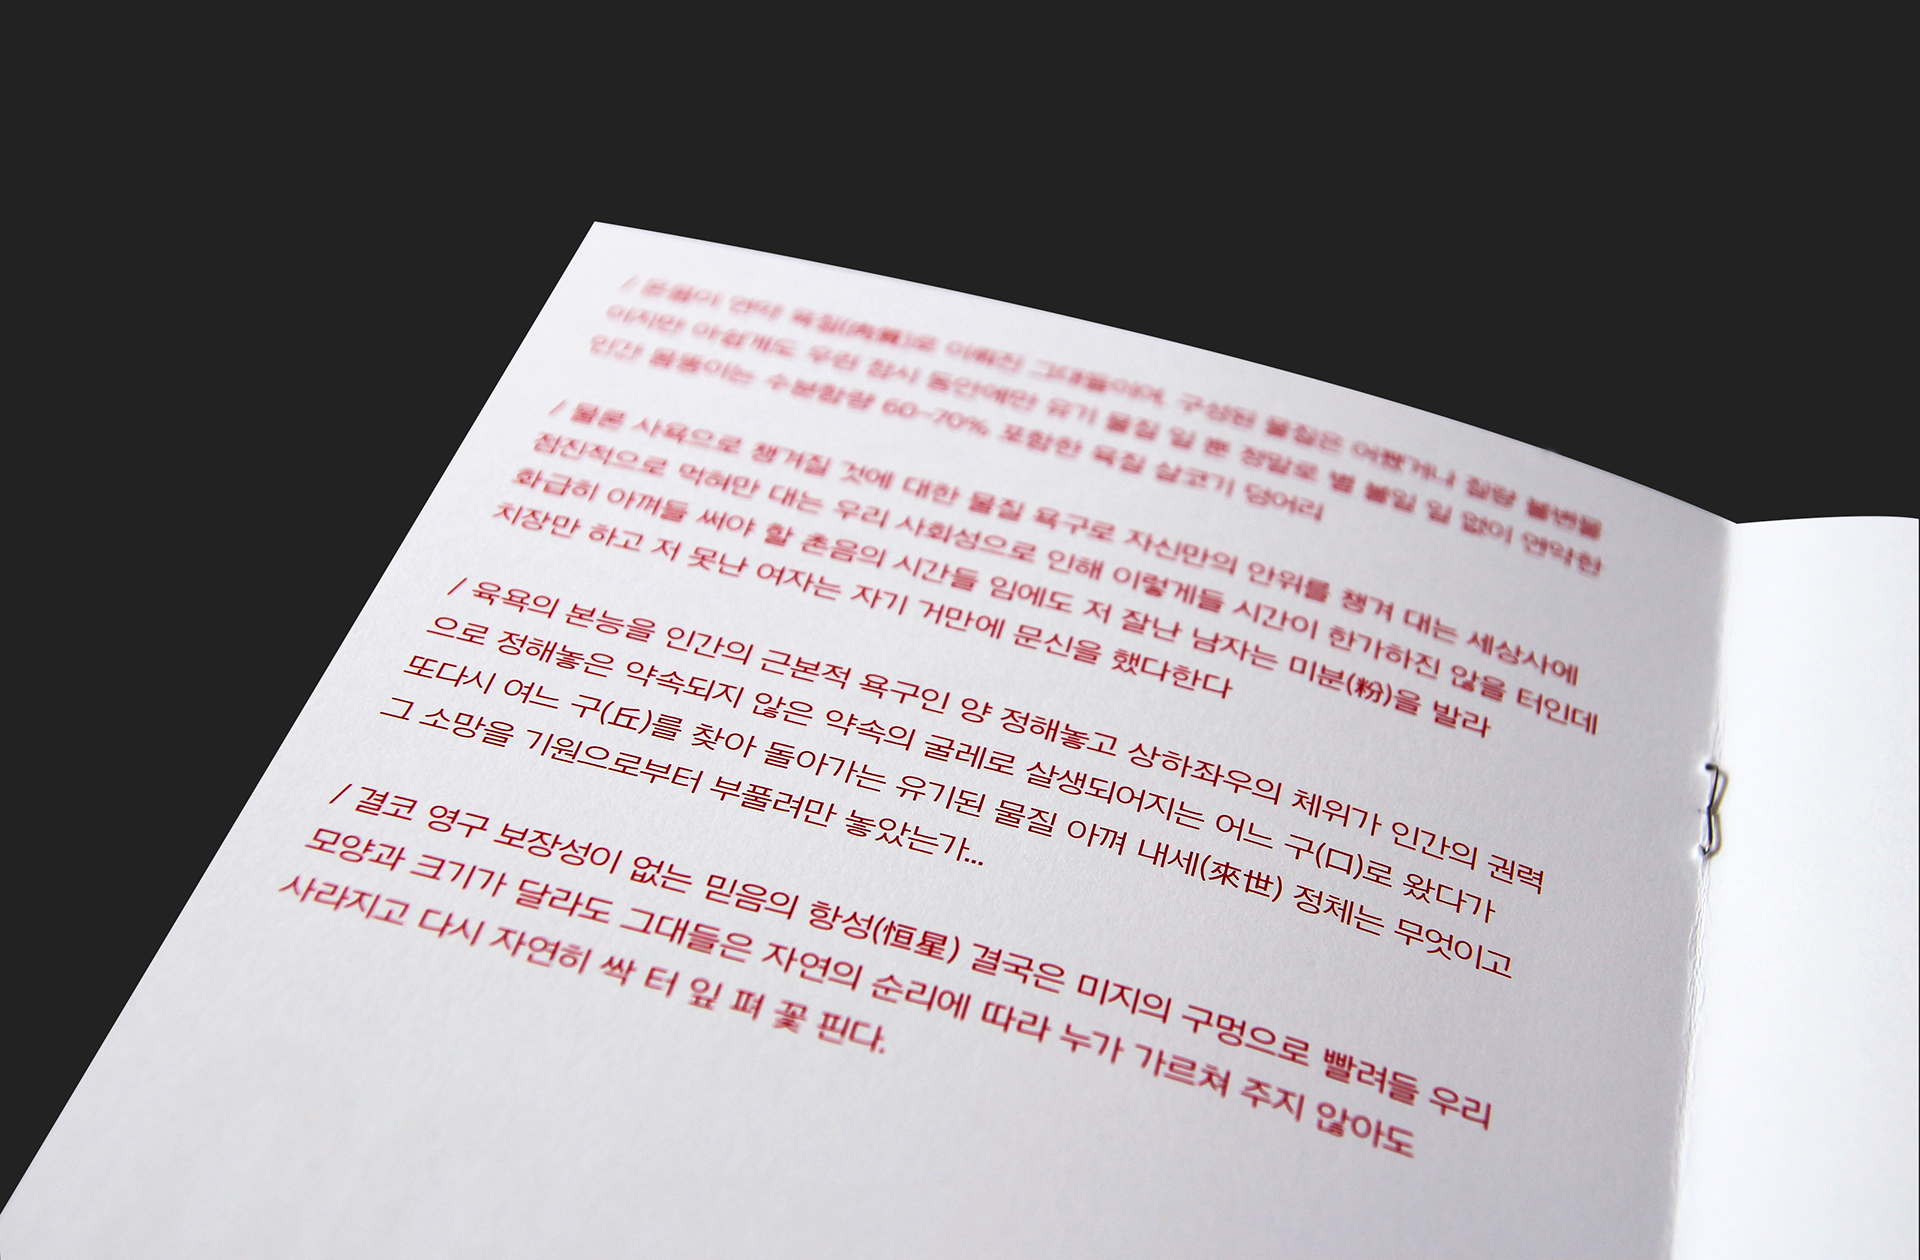 / 온몸이 연약 육질(肉質)로 이뤄진 그대들이여, 구성된 물질은 어쨌거나 질량 불변물
이지만 아쉽게도 우린 잠시 동안에만 유기 물질 일 뿐 정말로 별 볼일 일 없이 연약한
인간 몸뚱이는 수분함량 60~70% 포함한 육질 살코기 덩어리
/ 물론 사욕으로 챙겨질 것에 대한 물질 욕구로 자신만의 안위를 챙겨 대는 세상사에
점진적으로 먹혀만 대는 우리 사회성으로 인해 이렇게들 시간이 한가하진 않을 터인데
화급히 아껴들 써야 할 촌음의 시간들 임에도 저 잘난 남자는 미분(粉)을 발라
치장만 하고 저 못난 여자는 자기 거만에 문신을 했다한다
/ 육욕의 본능을 인간의 근본적 욕구인 양 정해놓고 상하좌우의 체위가 인간의 권력
으로 정해놓은 약속되지 않은 약속의 굴레로 살생되어지는 어느 구(口)로 왔다가
또다시 여느 구(丘)를 찾아 돌아가는 유기된 물질 아껴 내세(來世) 정체는 무엇이고
그 소망을 기원으로부터 부풀려만 놓았는가...
/ 결코 영구 보장성이 없는 믿음의 항성(恒星) 결국은 미지의 구멍으로 빨려들 우리
모양과 크기가 달라도 그대들은 자연의 순리에 따라 누가 가르쳐 주지 않아도
사라지고 다시 자연히 싹 터 잎 펴 꽃 핀다.